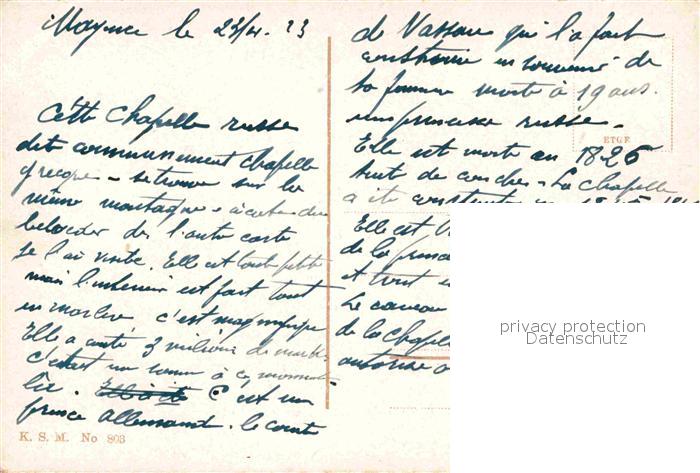 Mayence le 23/4. 23
Cette chapelle russe
dit communément chapelle
grecque - se trouve sur la
même montagne - à coté du
belvéder de l'autre carte
je l'ai visité. Elle est toute petite
mais l'intérieur est fait tout
en marbre c'est magnifique
Elle a couté 3 millions de marks
c'était une somme à ce moment
là. C'est un
prince allemand. le comte
K. S. M. No 803
de Nassau qui l'a fait
construire en souvenir de
sa femme morte à 19 ans.
une princesse russe -
Elle est morte en 1826
suite de couches - La chapelle
a été construite
Elle est
de la
et tout
Le caveau
de la chapelle
autorise
privacy protection
Datenschutz